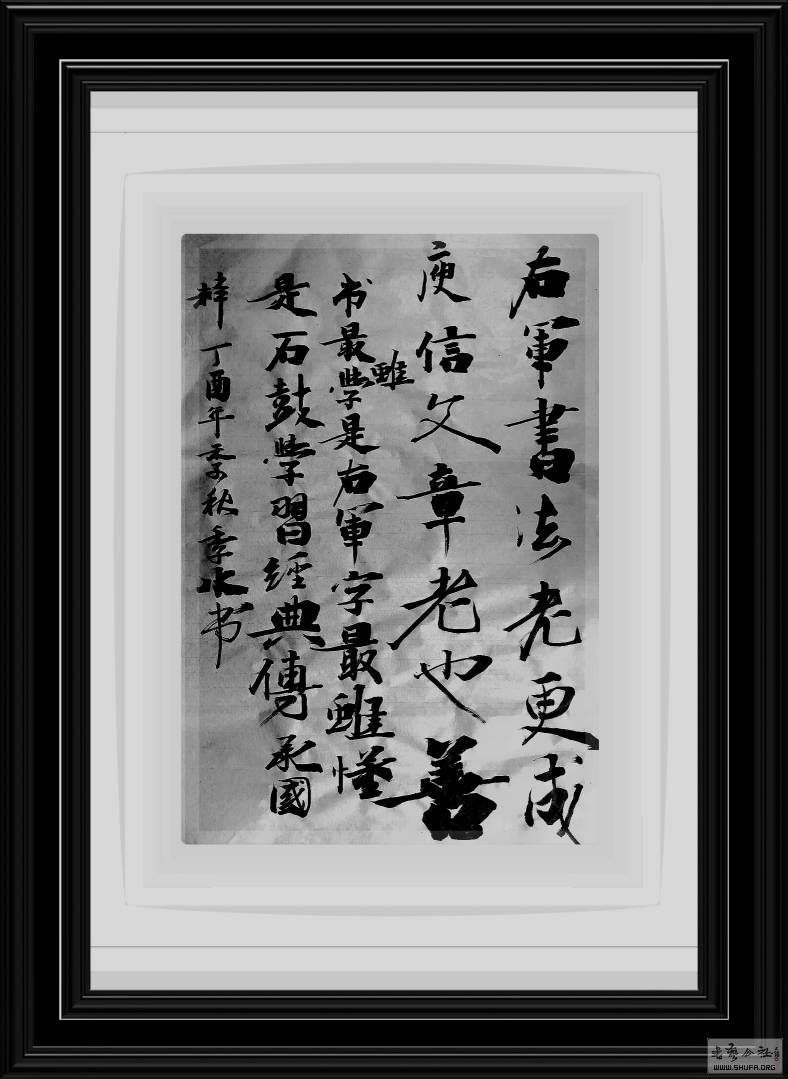 右軍書法老更成
庾信文章老也善
书最雖學是右軍字最雖懂
是石鼓學習經典傳承國
粹 丁酉年季秋季水书
WWW.SHUFA.ORG